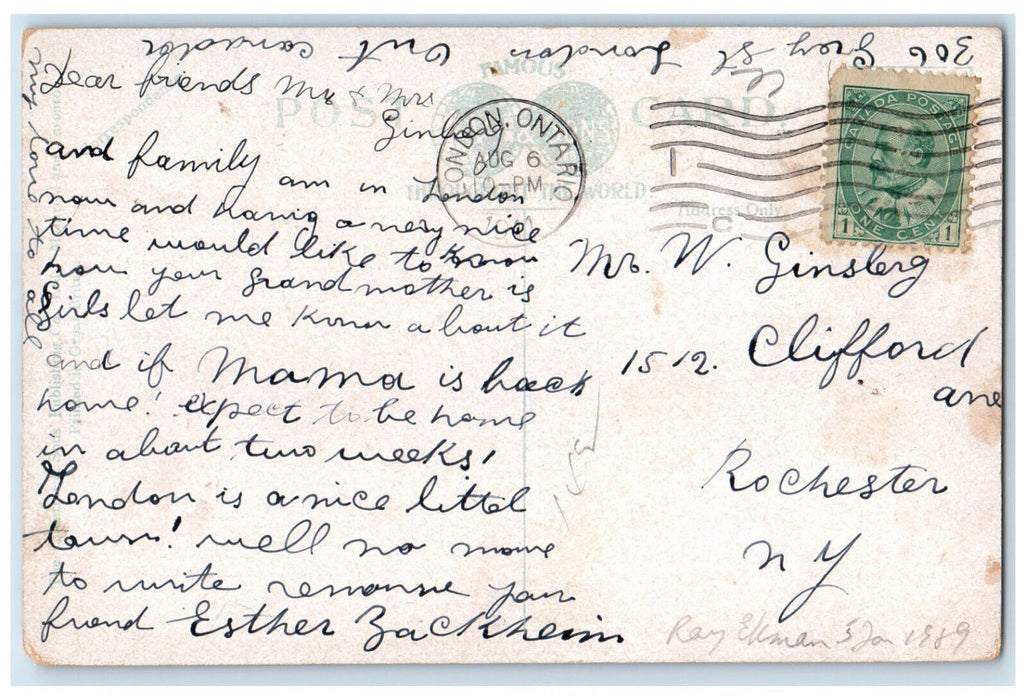 306 Grey St London Ont canada
Dear friends Mr & Mrs
Ginsberg
and family am in London
now and having a very nice
time would like to know
how your grandmother is
Girls let me know about it
and if Mama is back
home! expect to be home
in about two weeks!
London is a nice littel
town! well no more
to write remane your
friend Esther Zackheim
my love to all
POST CARD
FAMOUS
THROUGHOUT THE WORLD
Address Only
LONDON, ONTARIO
AUG 6
PM
1
C
CANADA POSTAGE
1 ONE CENT 1
Mr. W. Ginsberg
1512. Clifford
ave
Rochester
N Y
Ray Ekman 5 Jan 1989